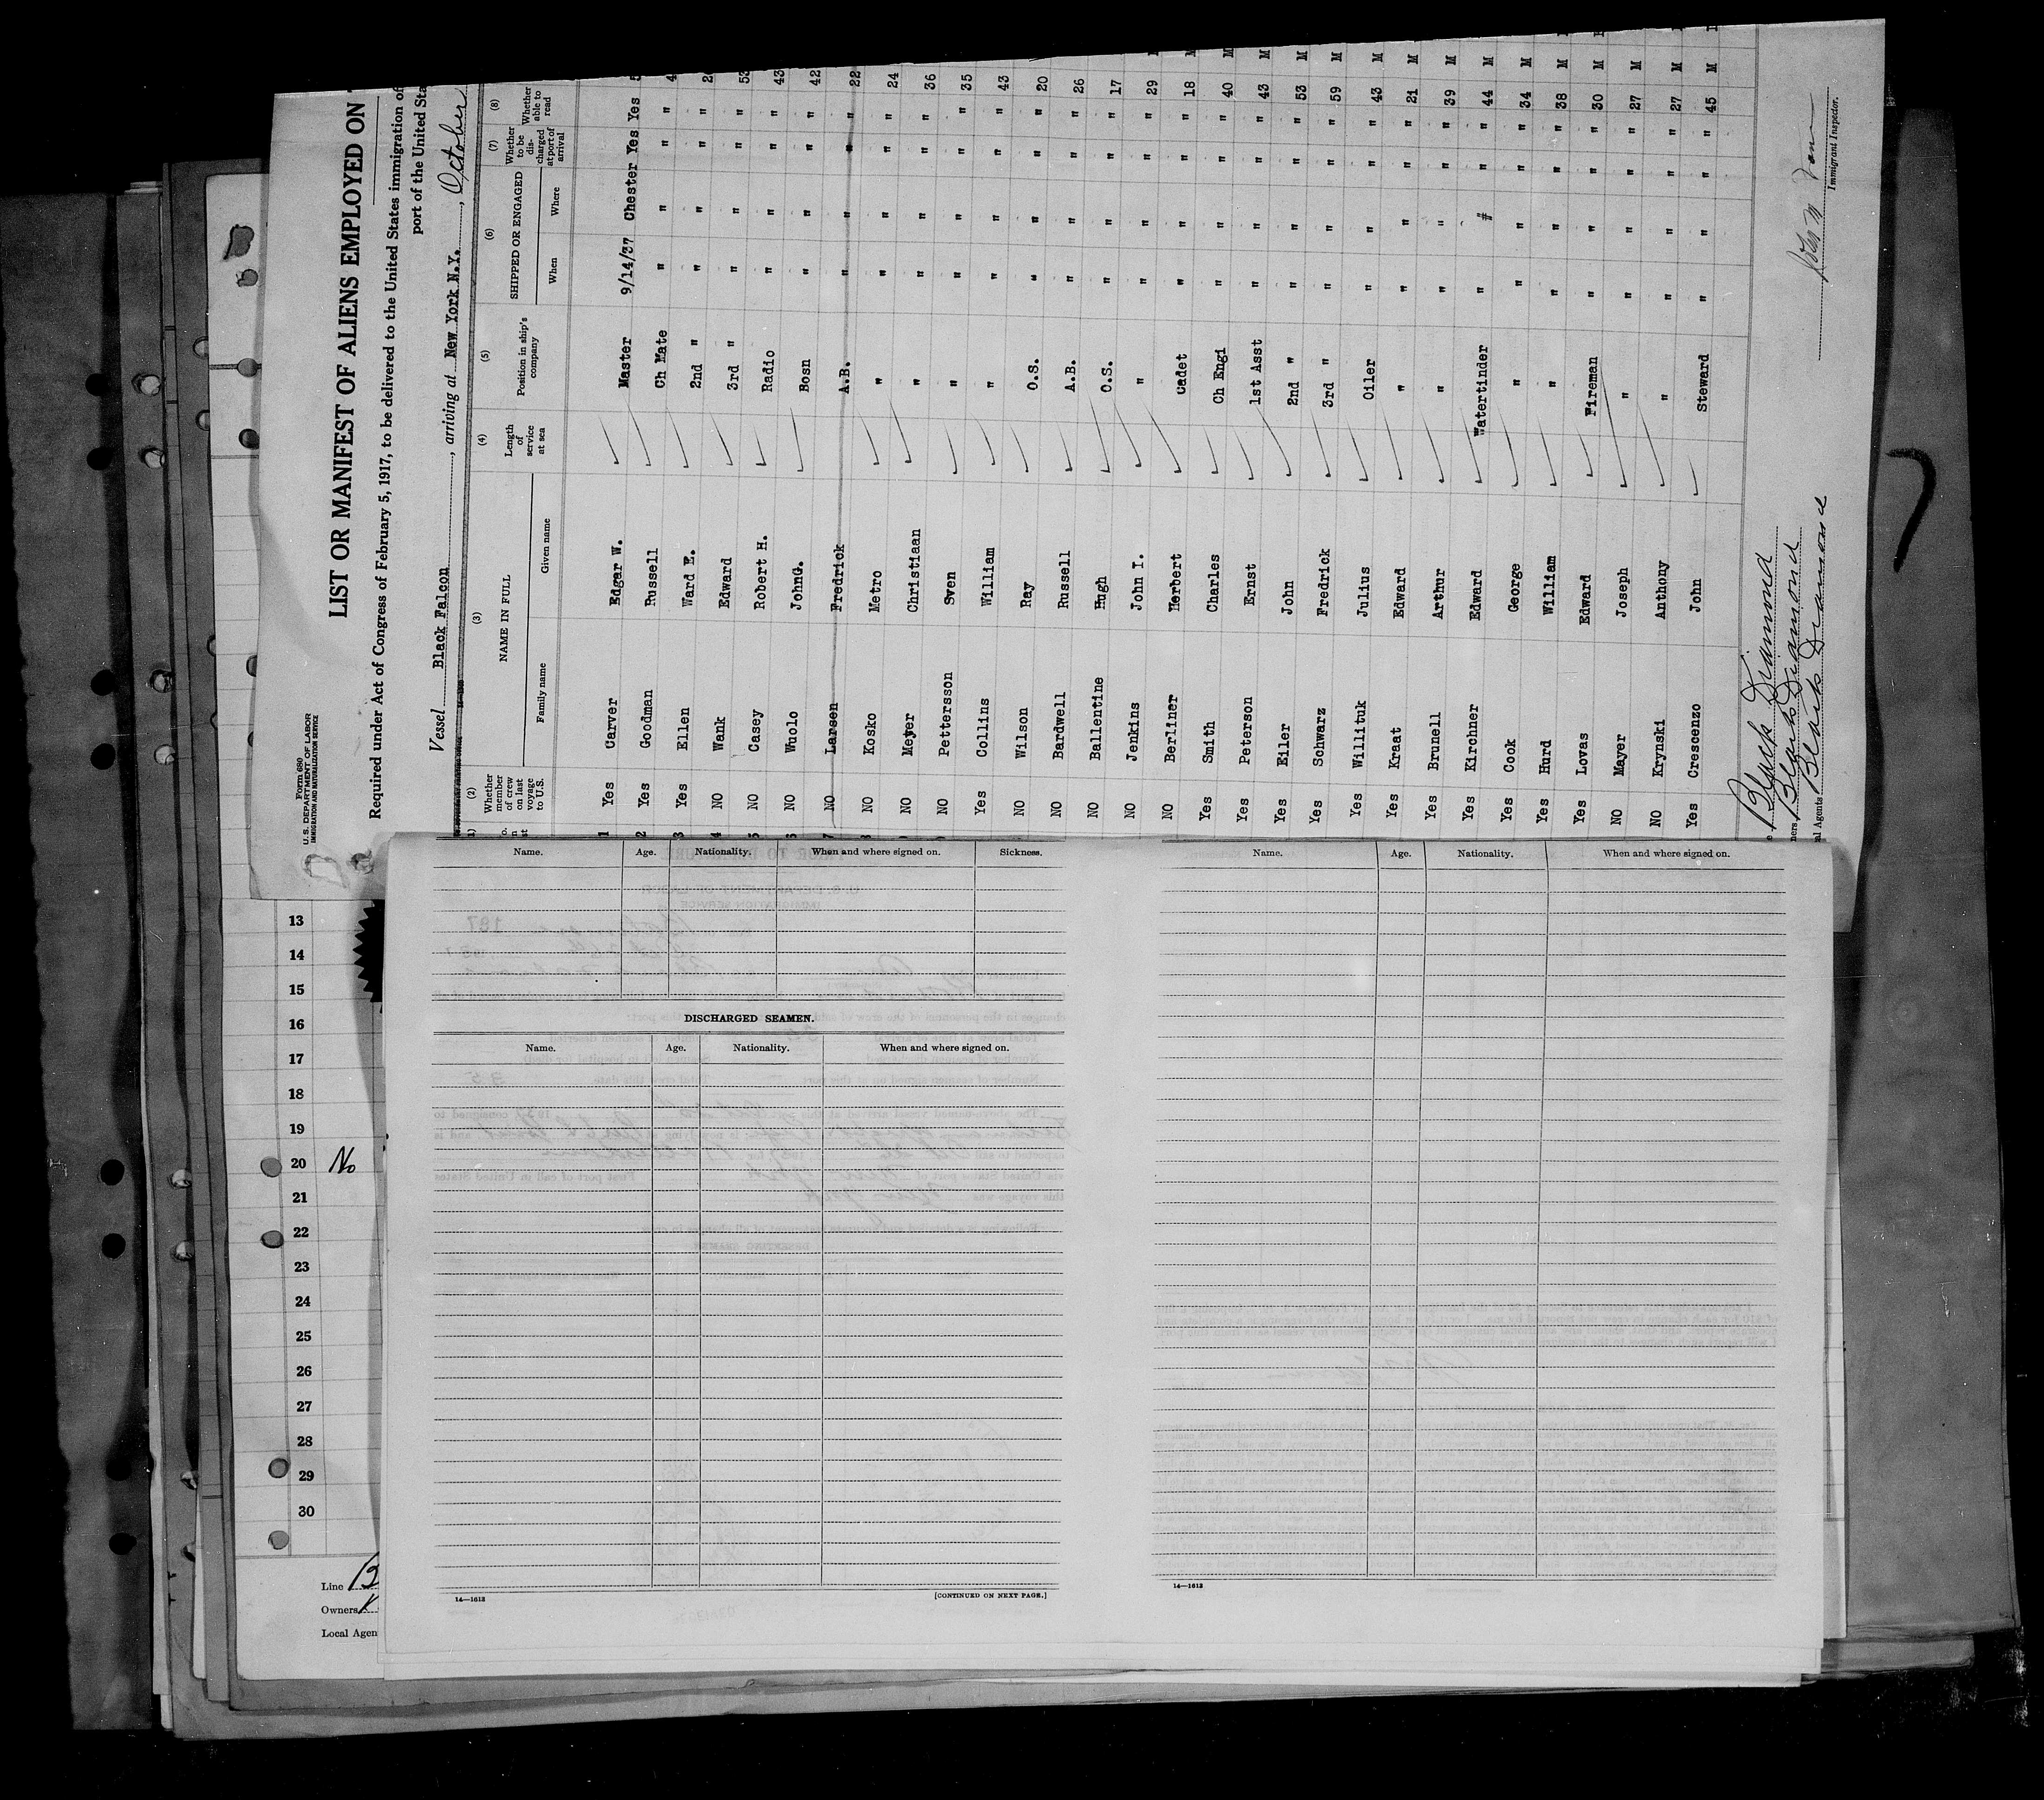 Form 680
U. S. DEPARTMENT OF LABOR
IMMIGRATION AND NATURALIZATION SERVICE
LIST OR MANIFEST OF ALIENS EMPLOYED ON
Required under Act of Congress of February 5, 1917, to be delivered to the United States immigration of
port of the United Sta
Vessel Black Falcon, arriving at New York N.Y., October
(2) Whether member of crew on last voyage to U.S. (3) NAME IN FULL Family name Given name (4) Length of service at sea (5) Position in ship's company (6) SHIPPED OR ENGAGED When Where (7) Whether to be discharged at port of arrival (8) Whether able to read
1 Yes Carver Edgar W. Master 9/14/37 Chester Yes Yes 5
2 Yes Goodman Russell Ch Mate " " " " 4
3 Yes Ellen Ward E. 2nd " " " " " 2
4 NO Wank Edward 3rd " " " " " 53
5 NO Casey Robert H. Radio " " " " 43
6 NO Wuolo JohnG. Bosn " " " " 42
7 NO Larsen Fredrick A.B. " " " " 22
8 NO Kosko Metro " " " " " 24
NO Meyer Christiaan " " " " " 36
NO Pettersson Sven " " " " " 35
Yes Collins William " " " " " 43
NO Wilson Ray O.S. " " " " 20
NO Bardwell Russell A.B. " " " " 26
NO Ballentine Hugh O.S. " " " " 17
NO Jenkins John I. " " " " " 29
NO Berliner Herbert Cadet " " " " 18 M
Yes Smith Charles Ch Engi " " " " 40 M
Yes Peterson Ernst 1st Asst " " " " 43 M
Yes Eiler John 2nd " " " " " 53 M
Yes Schwarz Fredrick 3rd " " " " " 59 M
Yes Willituk Julius Oiler " " " " 43 M
Yes Kraat Edward " " " " " 21 M
Yes Brunell Arthur " " " " " 39 M
Yes Kirchner Edward Watertinder " # " " 44 M
Yes Cook George " " " " " 34 M
Yes Hurd William " " " " " 38 M
Yes Lovas Edward Fireman " " " " 30 M
NO Mayer Joseph " " " " " 27 M
NO Krynski Anthony " " " " " 27 M
Yes Crescenzo John Steward " " " " 45 M
Black Diamond
Black Diamond
al Agents Black Diamond
Immigrant Inspector.
Name. Age. Nationality. When and where signed on. Sickness.
DISCHARGED SEAMEN.
Name. Age. Nationality. When and where signed on.
14—1613
[CONTINUED ON NEXT PAGE.]
Name. Age. Nationality. When and where signed on.
14—1613
13
14
15
16
17
18
19
20 No
21
22
23
24
25
26
27
28
29
30
Line B
Owners
Local Agen